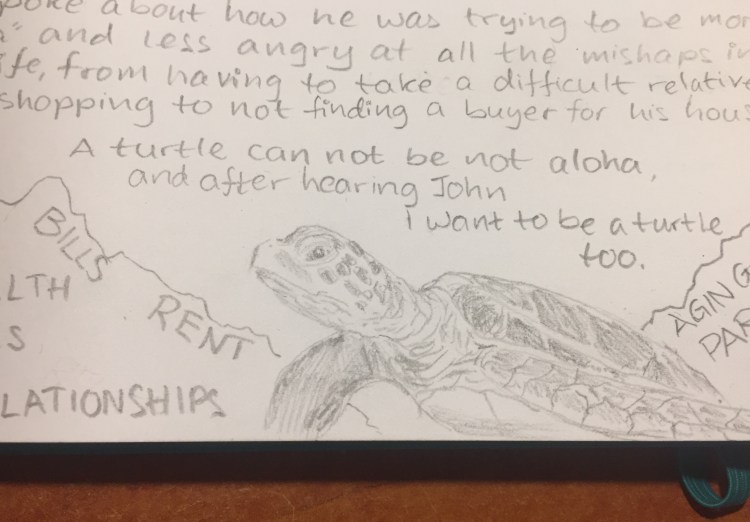 poke about how he was trying to be mor
a" and less angry at all the mishaps in
ife, from having to take a difficult relative
shopping to not finding a buyer for his hous
A turtle can not be not aloha,
and after hearing John
i want to be a turtle
too.
BILLS
LTH
RENT
S
LATIONSHIPS
AGING
PAR